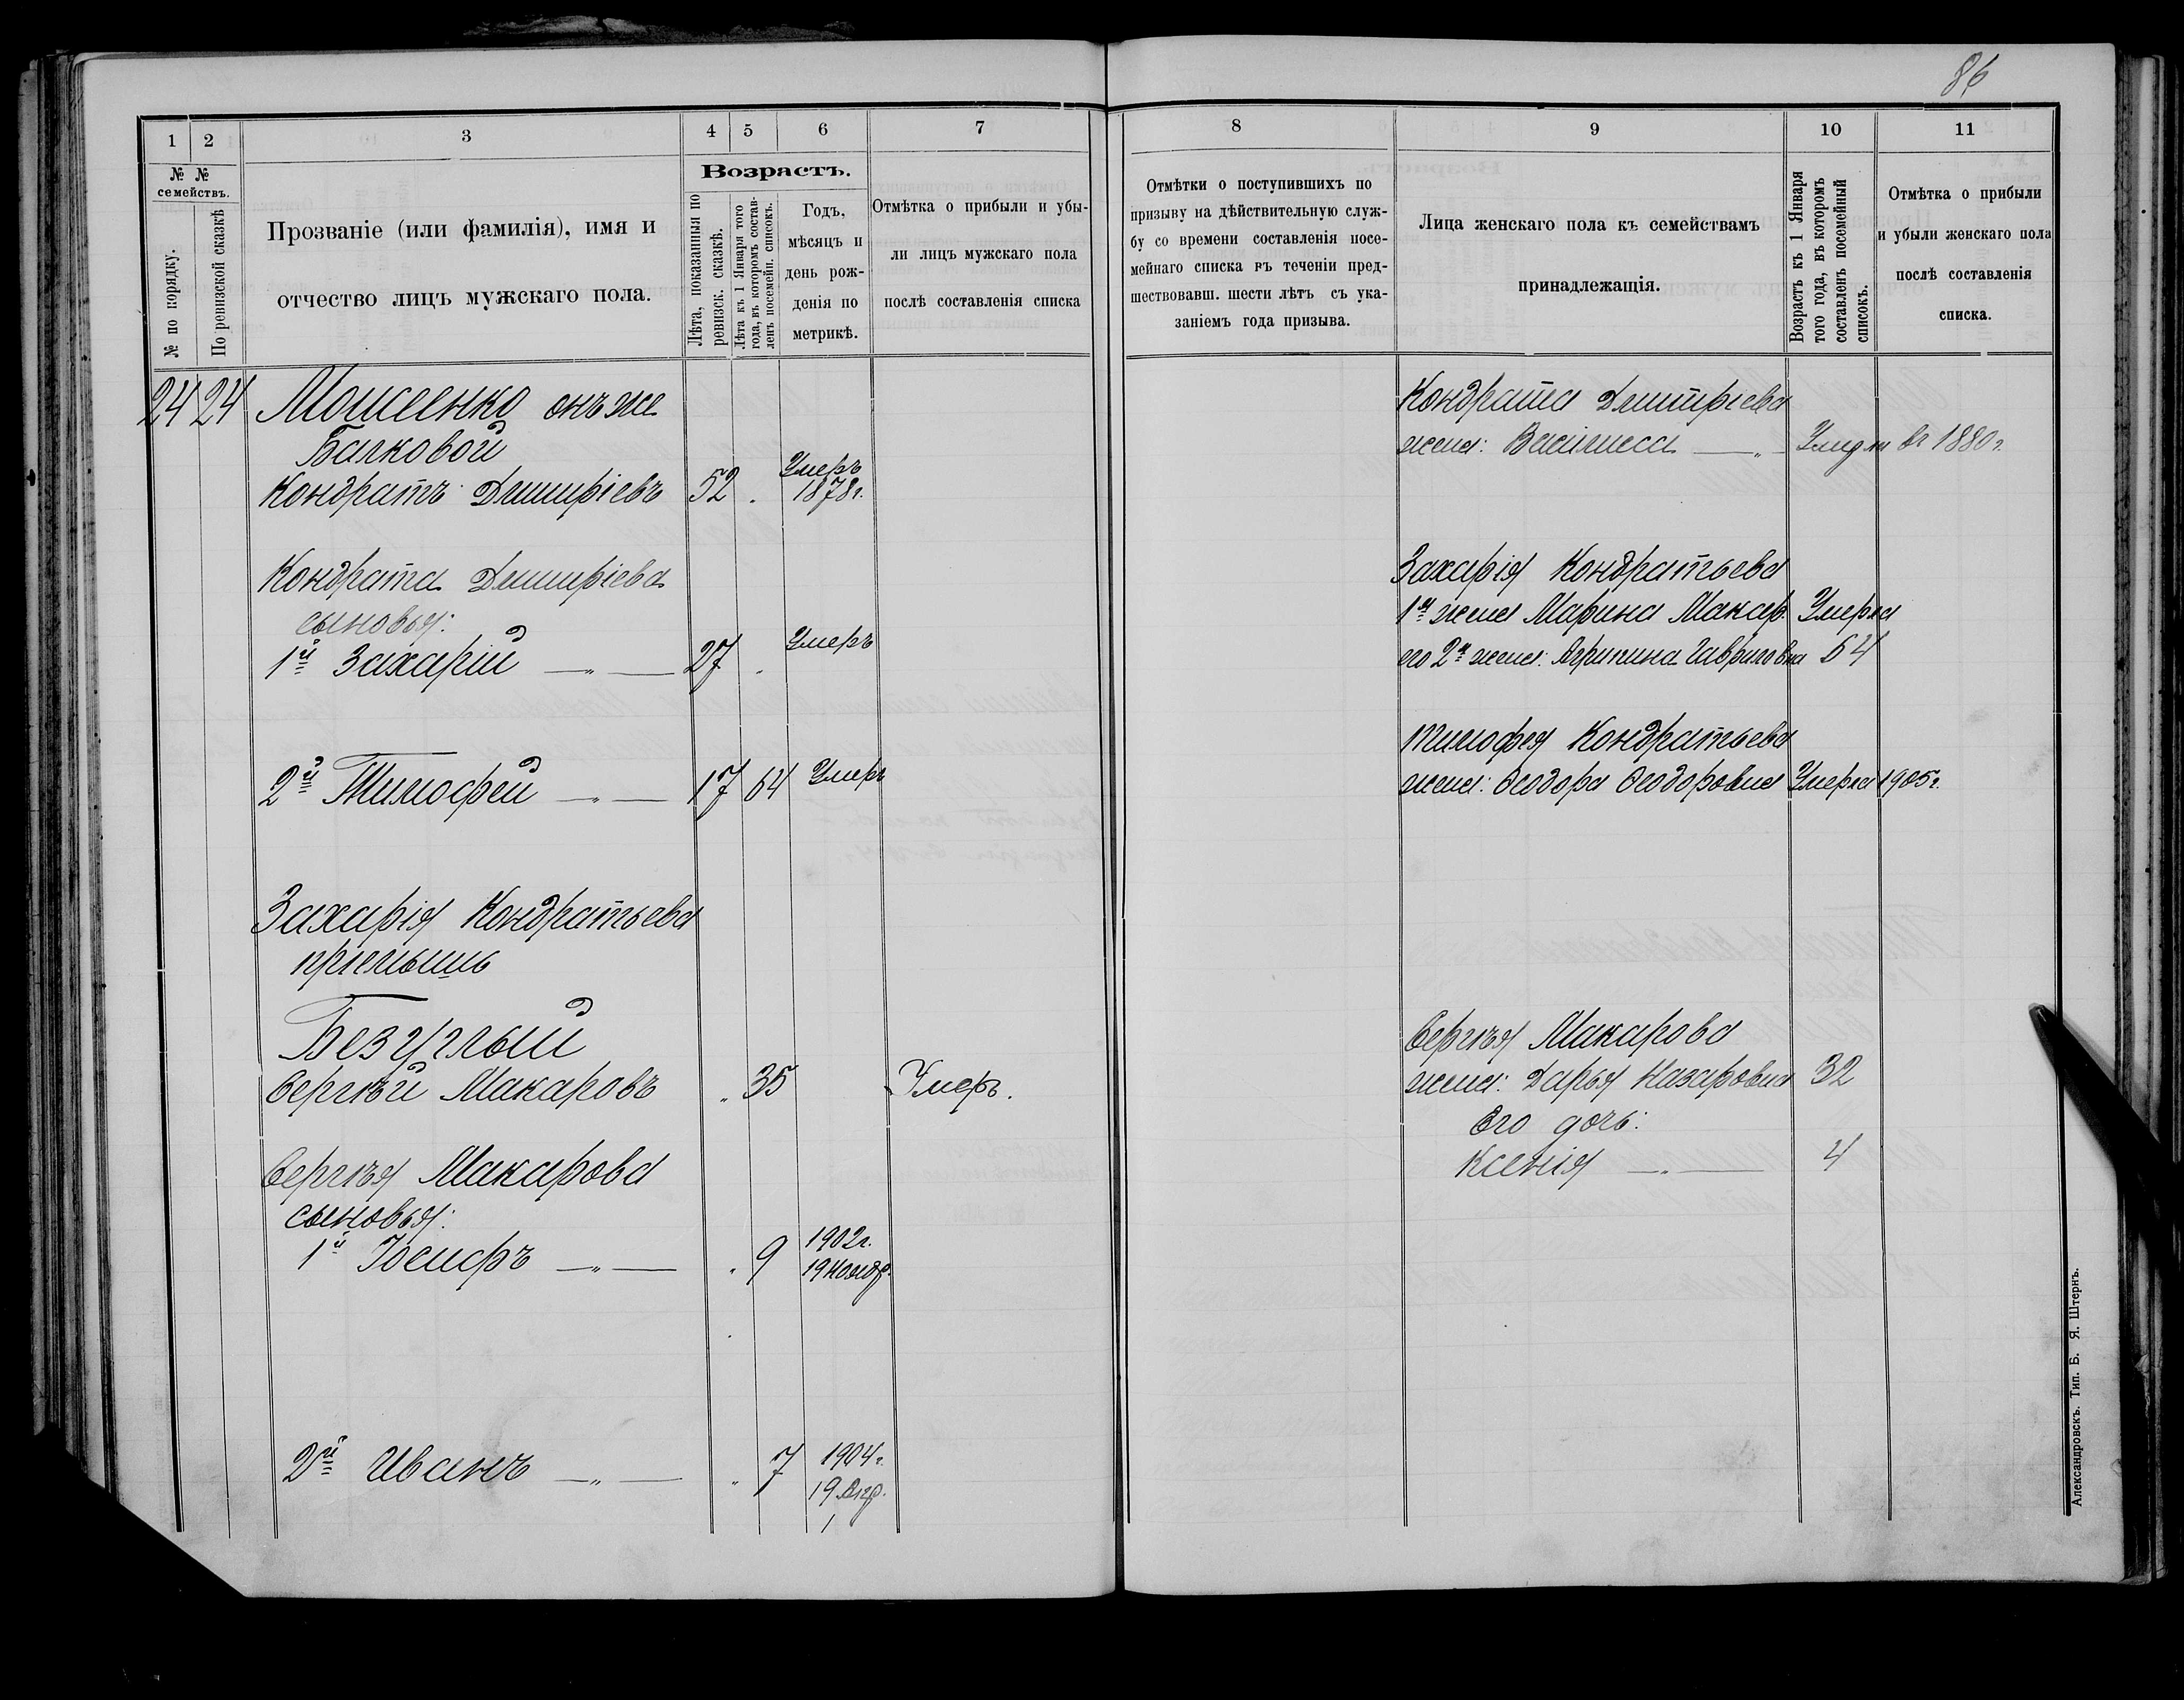 86
1 2 3 4 5 6 7
№ № семействъ.
№ по порядку.
По ревизской сказкѣ
Прозваніе (или фамилія), имя и
отчество лицъ мужскаго пола.
Возрастъ.
Лѣта, показанныя по
ревизск. сказкѣ.
Лѣта къ 1 Января того
года, въ которомъ состав-
ленъ посемейн. списокъ.
Годъ,
мѣсяцъ и
день рож-
денія по
метрикѣ.
Отмѣтка о прибыли и убы-
ли лицъ мужскаго пола
послѣ составленія списка
24 24 Моисеенко онъ же
Балковой
Кондратъ Дмитріевъ 52 . Умеръ 1878г.
Кондрата Дмитріева
сыновья:
1й Захарій —„— 27 . Умеръ
2й Тимофей —„— 17 64 Умеръ
Захарія Кондратьева
пріемышъ
Безуглый
Сергѣй Макаровъ „ 35 Умеръ.
Сергѣя Макарова
сыновья:
1й Іосифъ —„— „ 9 1902г.
19 Ноябр.
2й Иванъ —„— „ 7 1904г.
19
8 9 10 11
Отмѣтки о поступившихъ по
призыву на дѣйствительную служ-
бу со времени составленія посе-
мейнаго списка въ теченіи пред-
шествовавш. шести лѣтъ съ ука-
заніемъ года призыва.
Лица женскаго пола къ семействамъ
принадлежащія.
Возрастъ къ 1 Января
того года, въ которомъ
составленъ посемейный
списокъ.
Отмѣтка о прибыли
и убыли женскаго пола
послѣ составленія
списка.
Кондрата Дмитріева
жена: Василиса —„— въ 1880г.
Захарія Кондратьева
1я жена Марина Макар. Умерла
его 2я жена: Агрипина Гавриловна 54
Тимофея Кондратьева
жена: Ѳеодора Ѳеодоровна Умерла 1905г.
Сергѣя Макарова
жена: Дарья Назаровна 32
Его дочь:
Ксенія —„— 4
Александровскъ. Тип. Б. Я. Штернъ.